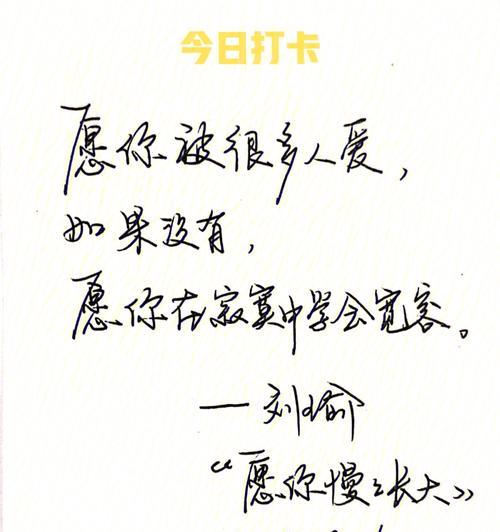 今日打卡
愿你被很多人爱，
如果没有，
愿你在寂寞中学会宽容。
— 刘瑜
“愿你慢々长大》